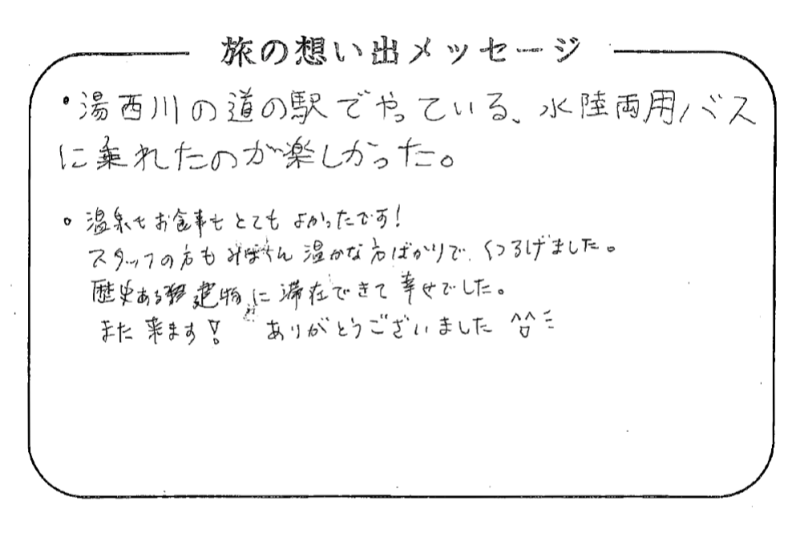 旅の想い出メッセージ
・湯西川の道の駅でやっている、水陸両用バス
に乗れたのが楽しかった。
・温泉もお食事もとてもよかったです!
スタッフの方もみなさん温かな方ばかりで、くつろげました。
歴史ある建物に滞在できて幸せでした。
また来ます! ありがとうございました ^^